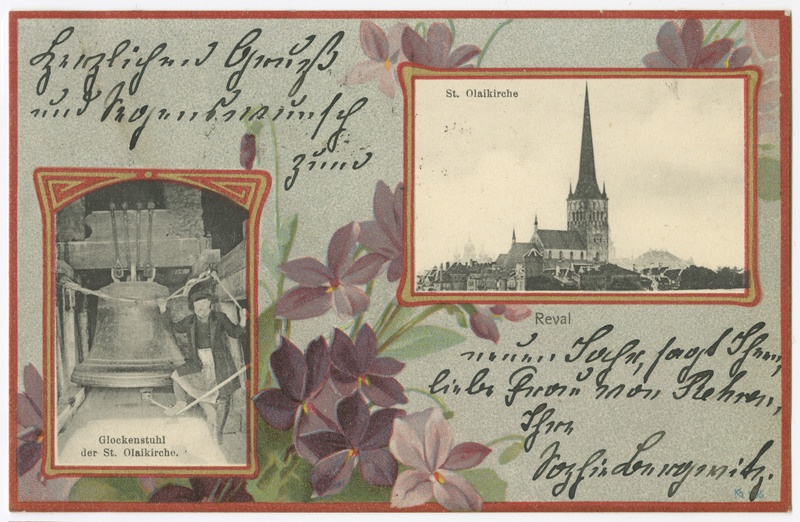 Herzlichen Gruß
und Segenswunsch
zum
St. Olaikirche
Glockenstuhl
der St. Olaikirche.
Reval
neuen Jahr, sagt Ihnen,
liebe Frau von Rehren,
Ihre
Sophie